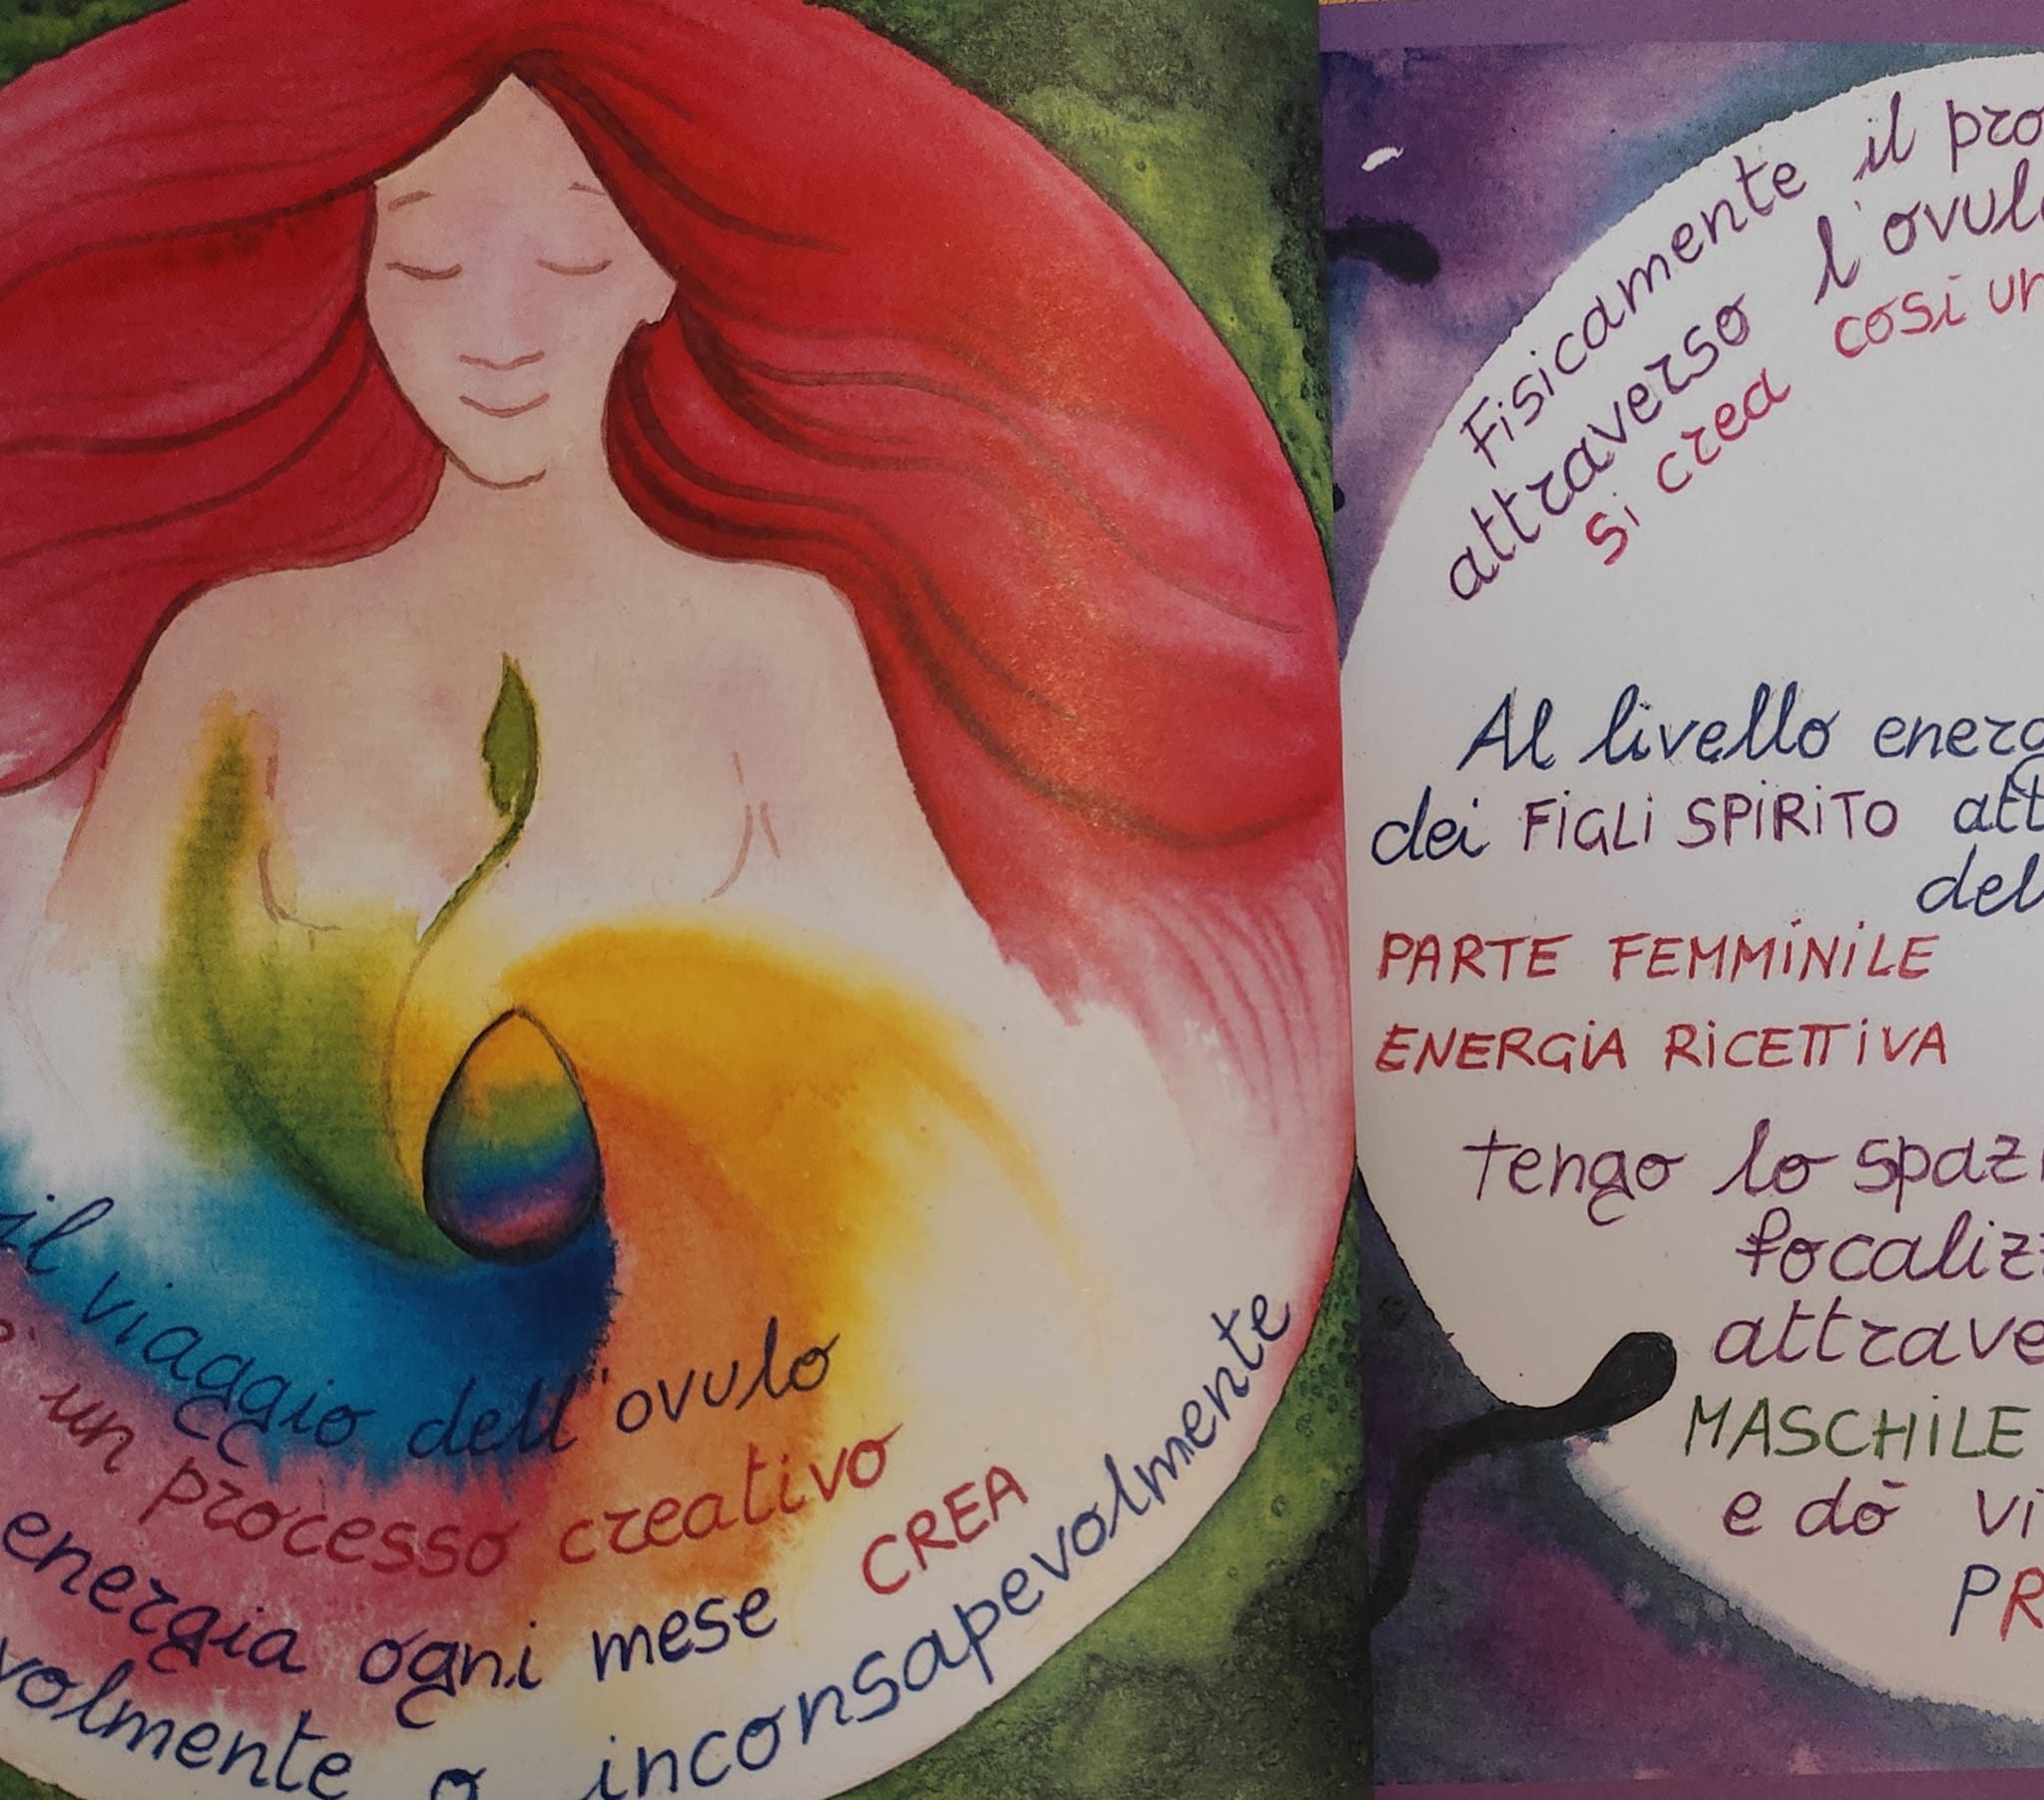 il viaggio dell'ovulo
è un processo creativo
energia ogni mese CREA
volmente o inconsapevolmente
Fisicamente il pro
attraverso l'ovul
si crea così un
Al livello energ
dei FiGLi SPiRiTO att
del
PARTE FEMMiNiLE
ENERGiA RiCETTiVA
tengo lo spazi
focaliz
attrave
MASCHiLE
e dò vi
PR